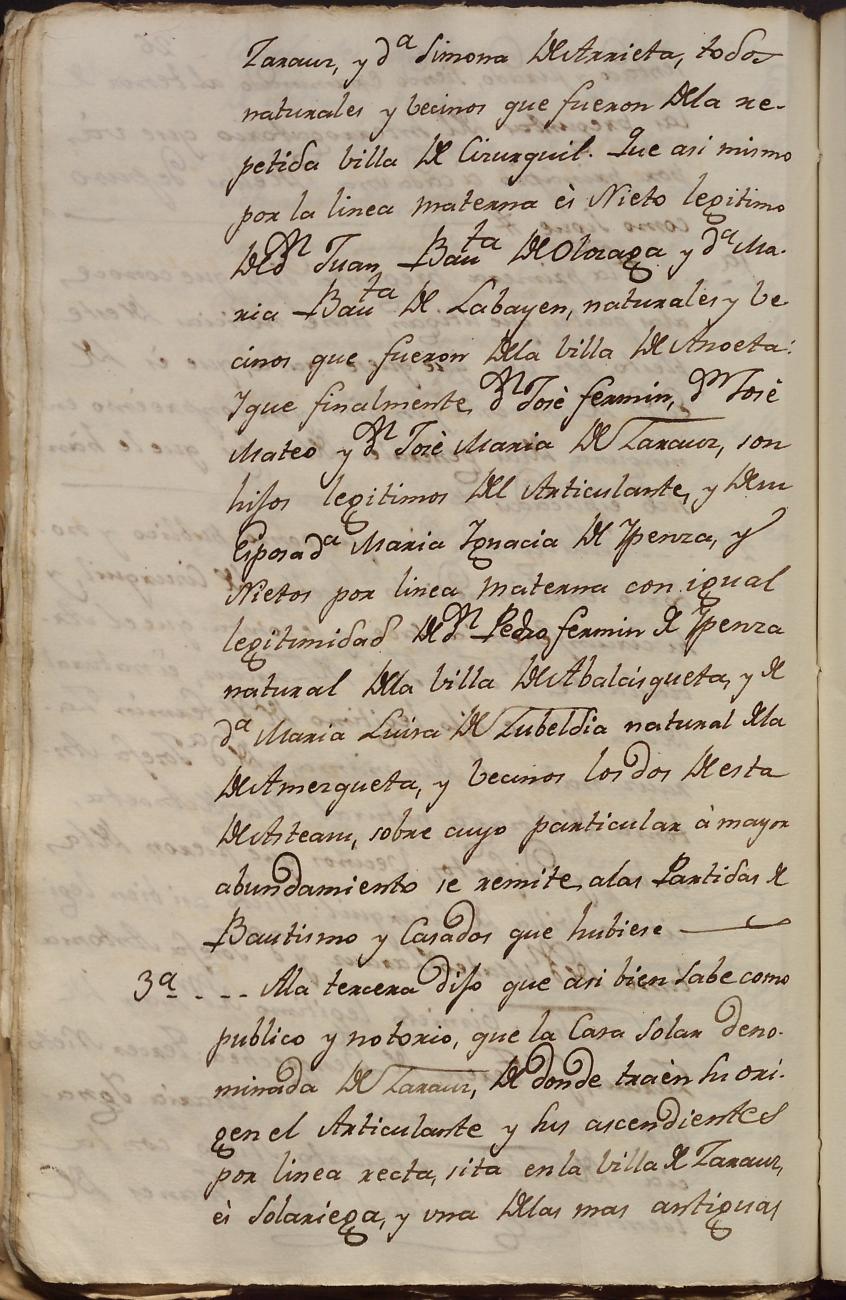 Zarauz, y dª Simona De Arrieta, todos
naturales y vecinos que fueron Dela re-
petida villa De Cizurquil. Que asi mismo
por la linea materna ès Nieto legitimo
De dn Juan Bauta De Olozaga y dª Ma-
ria Bauta De Labayen, naturales y ve
cinos que fueron Dela villa De Anoeta:
Y que finalmente, dn Josè fermin, dn Josè
Mateo y dn Josè Maria De Zarauz, son
hijos legitimos Del Articulante, y De su
Esposa dª Maria Ygnacia De Ypenza, y
Nietos por linea Materna con igual
legitimidad De dn Pedro fermin de Ypenza
natural Dela villa De Abalcisqueta, y de
dª Maria Luisa De Zubeldia natural dela
De Amezqueta, y vecinos los dos De esta
De Asteasu, sobre cuyo particular à mayor
abundamiento se remite alas Partidas de
Bautismo y Casados que hubiese
3ª . - - - Ala tercera dijo que asi bien Sabe como
publico y notorio, que la Casa Solar deno-
minada De Zarauz, De donde traèn su ori-
gen el Articulante y sus ascendientes
por linea recta, sita en la villa de Zarauz,
ès Solariega, y una Delas mas antiguas